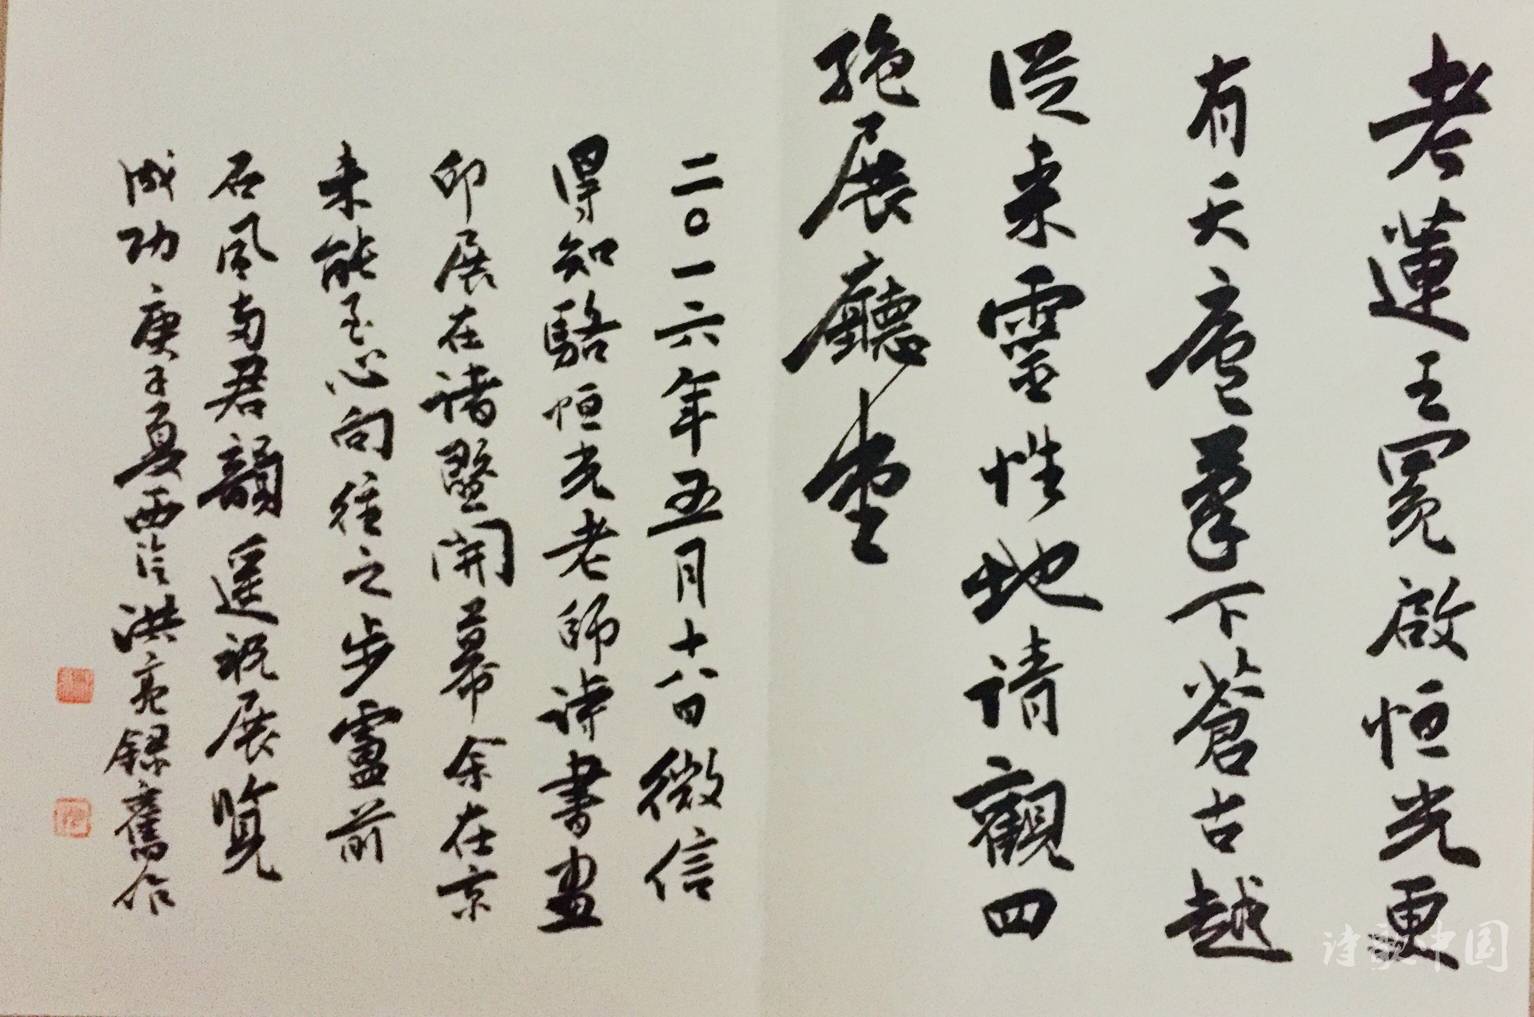 老蓮王冕啟恒光更
有天廬筆下蒼古越
從来靈性地请觀四
絶展廳堂
二〇一六年五月十八日微信
得知駱恒光老師詩書画
印展在诸暨開幕余在京
未能至心向往之步盧前
石風南君韻遥祝展览
成功庚子夏西泠洪亮録舊作
诗歌中国